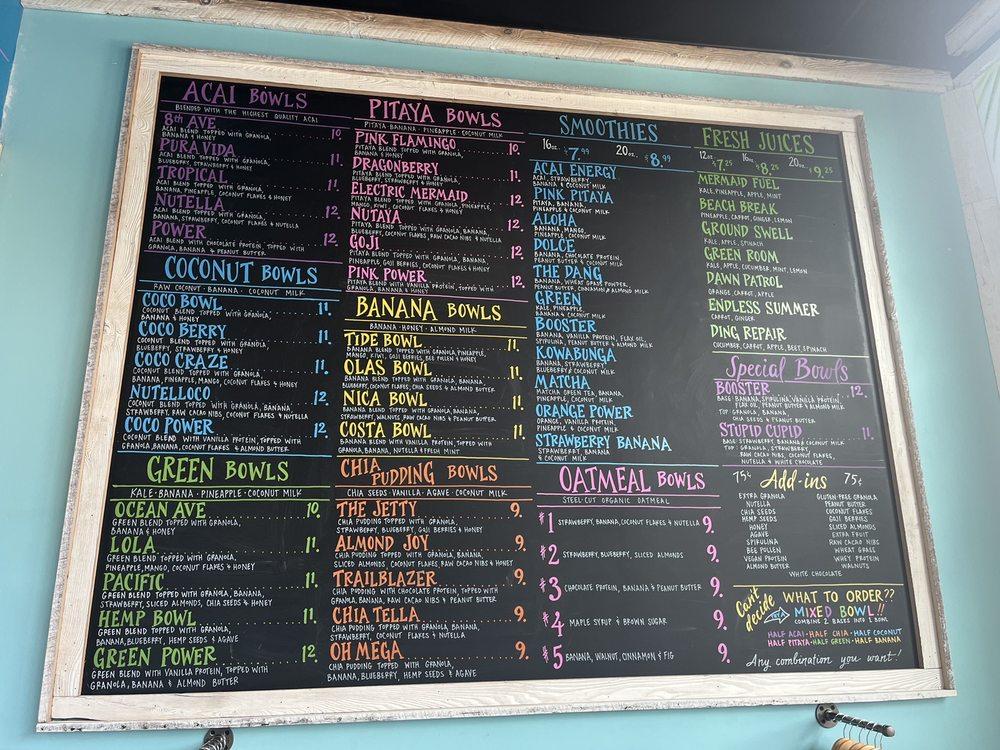 ACAI BOWLS
BLENDED WITH THE HIGHEST QUALITY ACAI
8th AVE 10.
ACAI BLEND TOPPED WITH GRANOLA,
BANANA & HONEY
PURA VIDA 11.
ACAI BLEND TOPPED WITH GRANOLA,
BLUEBERRY, STRAWBERRY & HONEY
TROPICAL 11.
ACAI BLEND TOPPED WITH GRANOLA,
BANANA, PINEAPPLE, COCONUT FLAKES & HONEY
NUTELLA 12.
ACAI BLEND TOPPED WITH GRANOLA,
BANANA, STRAWBERRY, COCONUT FLAKES & NUTELLA
POWER 12.
ACAI BLEND WITH CHOCOLATE PROTEIN, TOPPED WITH
GRANOLA, BANANA & PEANUT BUTTER
COCONUT BOWLS
RAW COCONUT · BANANA · COCONUT MILK
COCO BOWL 11.
COCONUT BLEND TOPPED WITH GRANOLA,
BANANA & HONEY
COCO BERRY 11.
COCONUT BLEND TOPPED WITH GRANOLA,
BLUEBERRY, STRAWBERRY & HONEY
COCO CRAZE 11.
COCONUT BLEND TOPPED WITH GRANOLA,
BANANA, PINEAPPLE, MANGO, COCONUT FLAKES & HONEY
NUTELLOCO 12.
COCONUT BLEND TOPPED WITH GRANOLA, BANANA,
STRAWBERRY, RAW CACAO NIBS, COCONUT FLAKES & NUTELLA
COCO POWER 12.
COCONUT BLEND WITH VANILLA PROTEIN, TOPPED WITH
GRANOLA, BANANA, COCONUT FLAKES & ALMOND BUTTER
GREEN BOWLS
KALE · BANANA · PINEAPPLE · COCONUT MILK
OCEAN AVE 10.
GREEN BLEND TOPPED WITH GRANOLA,
BANANA & HONEY
LOLA 11.
GREEN BLEND TOPPED WITH GRANOLA,
PINEAPPLE, MANGO, COCONUT FLAKES & HONEY
PACIFIC 11.
GREEN BLEND TOPPED WITH GRANOLA, BANANA,
STRAWBERRY, SLICED ALMONDS, CHIA SEEDS & HONEY
HEMP BOWL 11.
GREEN BLEND TOPPED WITH GRANOLA,
BANANA, BLUEBERRY, HEMP SEEDS & AGAVE
GREEN POWER 12.
GREEN BLEND WITH VANILLA PROTEIN, TOPPED WITH
GRANOLA, BANANA & ALMOND BUTTER
PITAYA BOWLS
PITAYA · BANANA · PINEAPPLE · COCONUT MILK
PINK FLAMINGO 10.
PITAYA BLEND TOPPED WITH GRANOLA,
BANANA & HONEY
DRAGONBERRY 11.
PITAYA BLEND TOPPED WITH GRANOLA,
BLUEBERRY, STRAWBERRY & HONEY
ELECTRIC MERMAID 11.
PITAYA BLEND TOPPED WITH GRANOLA, PINEAPPLE,
MANGO, KIWI, COCONUT FLAKES & HONEY
NUTAYA 12.
PITAYA BLEND TOPPED WITH GRANOLA, BANANA,
BLUEBERRY, COCONUT FLAKES, RAW CACAO NIBS & NUTELLA
GOJI 12.
PITAYA BLEND TOPPED WITH GRANOLA, BANANA,
PINEAPPLE, GOJI BERRIES, COCONUT FLAKES & HONEY
PINK POWER 12.
PITAYA BLEND WITH VANILLA PROTEIN, TOPPED WITH
GRANOLA, BANANA & HONEY
BANANA BOWLS
BANANA · HONEY · ALMOND MILK
TIDE BOWL 11.
BANANA BLEND TOPPED WITH GRANOLA, PINEAPPLE,
MANGO, KIWI, GOJI BERRIES, BEE POLLEN & HONEY
OLAS BOWL 11.
BANANA BLEND TOPPED WITH GRANOLA, BANANA,
BLUEBERRY, COCONUT FLAKES, CHIA SEEDS & ALMOND BUTTER
NICA BOWL 11.
BANANA BLEND TOPPED WITH GRANOLA, BANANA,
STRAWBERRY, WALNUTS, RAW CACAO NIBS & PEANUT BUTTER
COSTA BOWL 11.
BANANA BLEND WITH VANILLA PROTEIN, TOPPED WITH
GRANOLA, BANANA, NUTELLA & FRESH MINT
CHIA PUDDING BOWLS
CHIA SEEDS · VANILLA · AGAVE · COCONUT MILK
THE JETTY 9.
CHIA PUDDING TOPPED WITH GRANOLA,
STRAWBERRY, BLUEBERRY, GOJI BERRIES & HONEY
ALMOND JOY 9.
CHIA PUDDING TOPPED WITH GRANOLA, BANANA,
SLICED ALMONDS, COCONUT FLAKES, RAW CACAO NIBS & HONEY
TRAILBLAZER 9.
CHIA PUDDING WITH CHOCOLATE PROTEIN, TOPPED WITH
GRANOLA, BANANA, RAW CACAO NIBS & PEANUT BUTTER
CHIA TELLA 9.
CHIA PUDDING TOPPED WITH GRANOLA, BANANA,
STRAWBERRY, COCONUT FLAKES & NUTELLA
OH MEGA 9.
CHIA PUDDING TOPPED WITH GRANOLA,
BANANA, BLUEBERRY, HEMP SEEDS & AGAVE
SMOOTHIES
16oz. $7.99 20oz. $8.99
ACAI ENERGY
ACAI, STRAWBERRY,
BANANA & COCONUT MILK
PINK PITAYA
PITAYA, BANANA,
PINEAPPLE & COCONUT MILK
ALOHA
BANANA, MANGO,
PINEAPPLE & COCONUT MILK
DOLCE
BANANA, CHOCOLATE PROTEIN,
PEANUT BUTTER & COCONUT MILK
THE DANG
BANANA, WHEAT GRASS POWDER,
PEANUT BUTTER, CINNAMON & ALMOND MILK
GREEN
KALE, PINEAPPLE,
BANANA & COCONUT MILK
BOOSTER
BANANA, VANILLA PROTEIN, FLAX OIL,
SPIRULINA, PEANUT BUTTER & ALMOND MILK
KOWABUNGA
BANANA, STRAWBERRY,
BLUEBERRY & COCONUT MILK
MATCHA
MATCHA GREEN TEA, BANANA,
PINEAPPLE, COCONUT MILK
ORANGE POWER
ORANGE, VANILLA PROTEIN,
PINEAPPLE & COCONUT MILK
STRAWBERRY BANANA
STRAWBERRY, BANANA
& COCONUT MILK
OATMEAL BOWLS
STEEL-CUT ORGANIC OATMEAL
#1 STRAWBERRY, BANANA, COCONUT FLAKES & NUTELLA 9.
#2 STRAWBERRY, BLUEBERRY, SLICED ALMONDS 9.
#3 CHOCOLATE PROTEIN, BANANA & PEANUT BUTTER 9.
#4 MAPLE SYRUP & BROWN SUGAR 9.
#5 BANANA, WALNUT, CINNAMON & FIG 9.
FRESH JUICES
12oz. $7.25 16oz. $8.25 20oz. $9.25
MERMAID FUEL
KALE, PINEAPPLE, APPLE, MINT
BEACH BREAK
PINEAPPLE, CARROT, GINGER, LEMON
GROUND SWELL
KALE, APPLE, SPINACH
GREEN ROOM
KALE, APPLE, CUCUMBER, MINT, LEMON
DAWN PATROL
ORANGE, CARROT, APPLE
ENDLESS SUMMER
CARROT, GINGER
DING REPAIR
CUCUMBER, CARROT, APPLE, BEET, SPINACH
Special Bowls
BOOSTER 12.
BASE: BANANA, SPIRULINA, VANILLA PROTEIN,
FLAX OIL, PEANUT BUTTER & ALMOND MILK
TOP: GRANOLA, BANANA,
CHIA SEEDS & PEANUT BUTTER
STUPID CUPID 11.
BASE: STRAWBERRY, BANANA & COCONUT MILK
TOP: GRANOLA, STRAWBERRY,
RAW CACAO NIBS, COCONUT FLAKES,
NUTELLA & WHITE CHOCOLATE
75¢ Add-ins 75¢
EXTRA GRANOLA
NUTELLA
CHIA SEEDS
HEMP SEEDS
HONEY
AGAVE
SPIRULINA
BEE POLLEN
VEGAN PROTEIN
ALMOND BUTTER
GLUTEN-FREE GRANOLA
PEANUT BUTTER
COCONUT FLAKES
GOJI BERRIES
SLICED ALMONDS
EXTRA FRUIT
RAW CACAO NIBS
WHEAT GRASS
WHEY PROTEIN
WALNUTS
WHITE CHOCOLATE
Can't decide WHAT TO ORDER??
TRY A MIXED BOWL!!
COMBINE 2 BASES INTO 1 BOWL
HALF ACAI · HALF CHIA · HALF COCONUT
HALF PITAYA · HALF GREEN · HALF BANANA
Any combination you want!